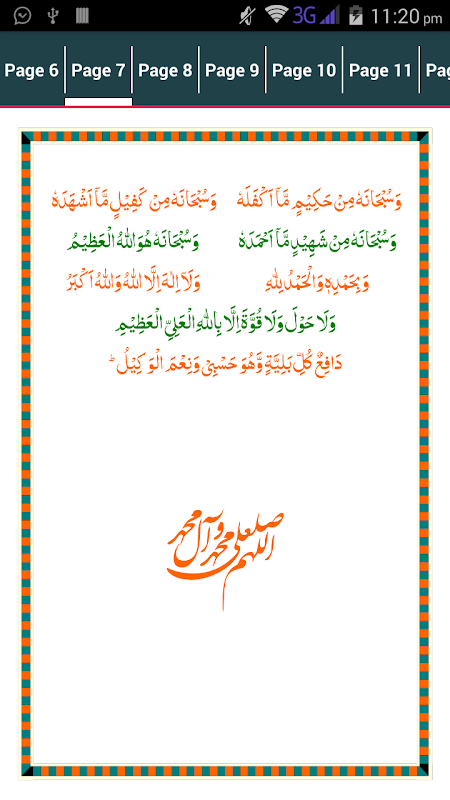 3G 11:20 pm
Page 6 Page 7 Page 8 Page 9 Page 10 Page 11 Pag
وَسُبْحَانَهٗ مِنْ حَكِيْمٍ مَّآ اَكْفَلَهٗ وَسُبْحَانَهٗ مِنْ كَفِيْلٍ مَّآ اَشْهَدَهٗ
وَسُبْحَانَهٗ مِنْ شَهِيْدٍ مَّآ اَحْمَدَهٗ وَسُبْحَانَهٗ هُوَ اللهُ الْعَظِيْمُ
وَبِحَمْدِهٖ وَالْحَمْدُ لِلّٰهِ وَلَآ اِلٰهَ اِلَّا اللهُ وَاللهُ اَكْبَرُ
وَلَا حَوْلَ وَلَا قُوَّةَ اِلَّا بِاللهِ الْعَلِيِّ الْعَظِيْمِ
دَافِعُ كُلِّ بَلِيَّةٍ وَّهُوَ حَسْبِىْ وَنِعْمَ الْوَكِيْلُ ؕ
اللهم صل علی محمد وآل محمد